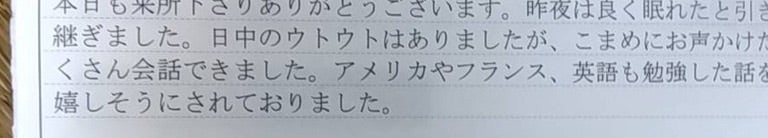 本日も来所下さりありがとうございます。昨夜は良く眠れたと引き
継ぎました。日中のウトウトはありましたが、こまめにお声かけた
くさん会話できました。アメリカやフランス、英語も勉強した話を
嬉しそうにされておりました。